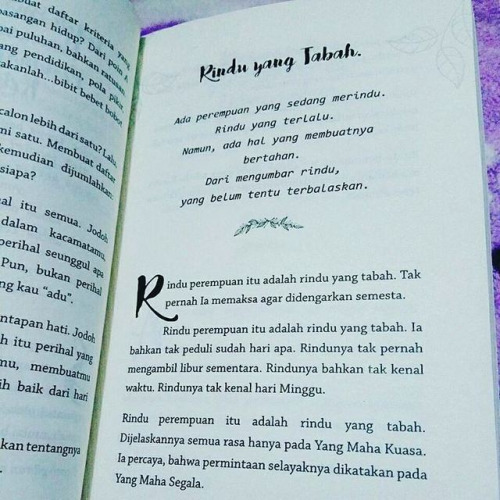 buat daftar kriteria yang
pasangan hidup? Dari poin A
puluhan, bahkan ratusan
pendidikan, pola pikir
bibit bebet bobot
calon lebih dari satu? Lalu,
satu. Membuat daftar
kemudian dijumlahkan
siapa?
itu semua. Jodoh
dalam kacamatamu,
perihal seunggul apa
Pun, bukan perihal
kau “adu”.
hati. Jodoh
itu perihal yang
membuatmu
baik dari hari
tentangnya
Rindu yang Tabah.
Ada perempuan yang sedang merindu.
Rindu yang terlalu.
Namun, ada hal yang membuatnya
bertahan.
Dari mengumbar rindu,
yang belum tentu terbalaskan.
Rindu perempuan itu adalah rindu yang tabah. Tak
pernah Ia memaksa agar didengarkan semesta.
Rindu perempuan itu adalah rindu yang tabah. Ia
bahkan tak peduli sudah hari apa. Rindunya tak pernah
mengambil libur sementara. Rindunya bahkan tak kenal
waktu. Rindunya tak kenal hari Minggu.
Rindu perempuan itu adalah rindu yang tabah.
Dijelaskannya semua rasa hanya pada Yang Maha Kuasa.
Ia percaya, bahwa permintaan selayaknya dikatakan pada
Yang Maha Segala.